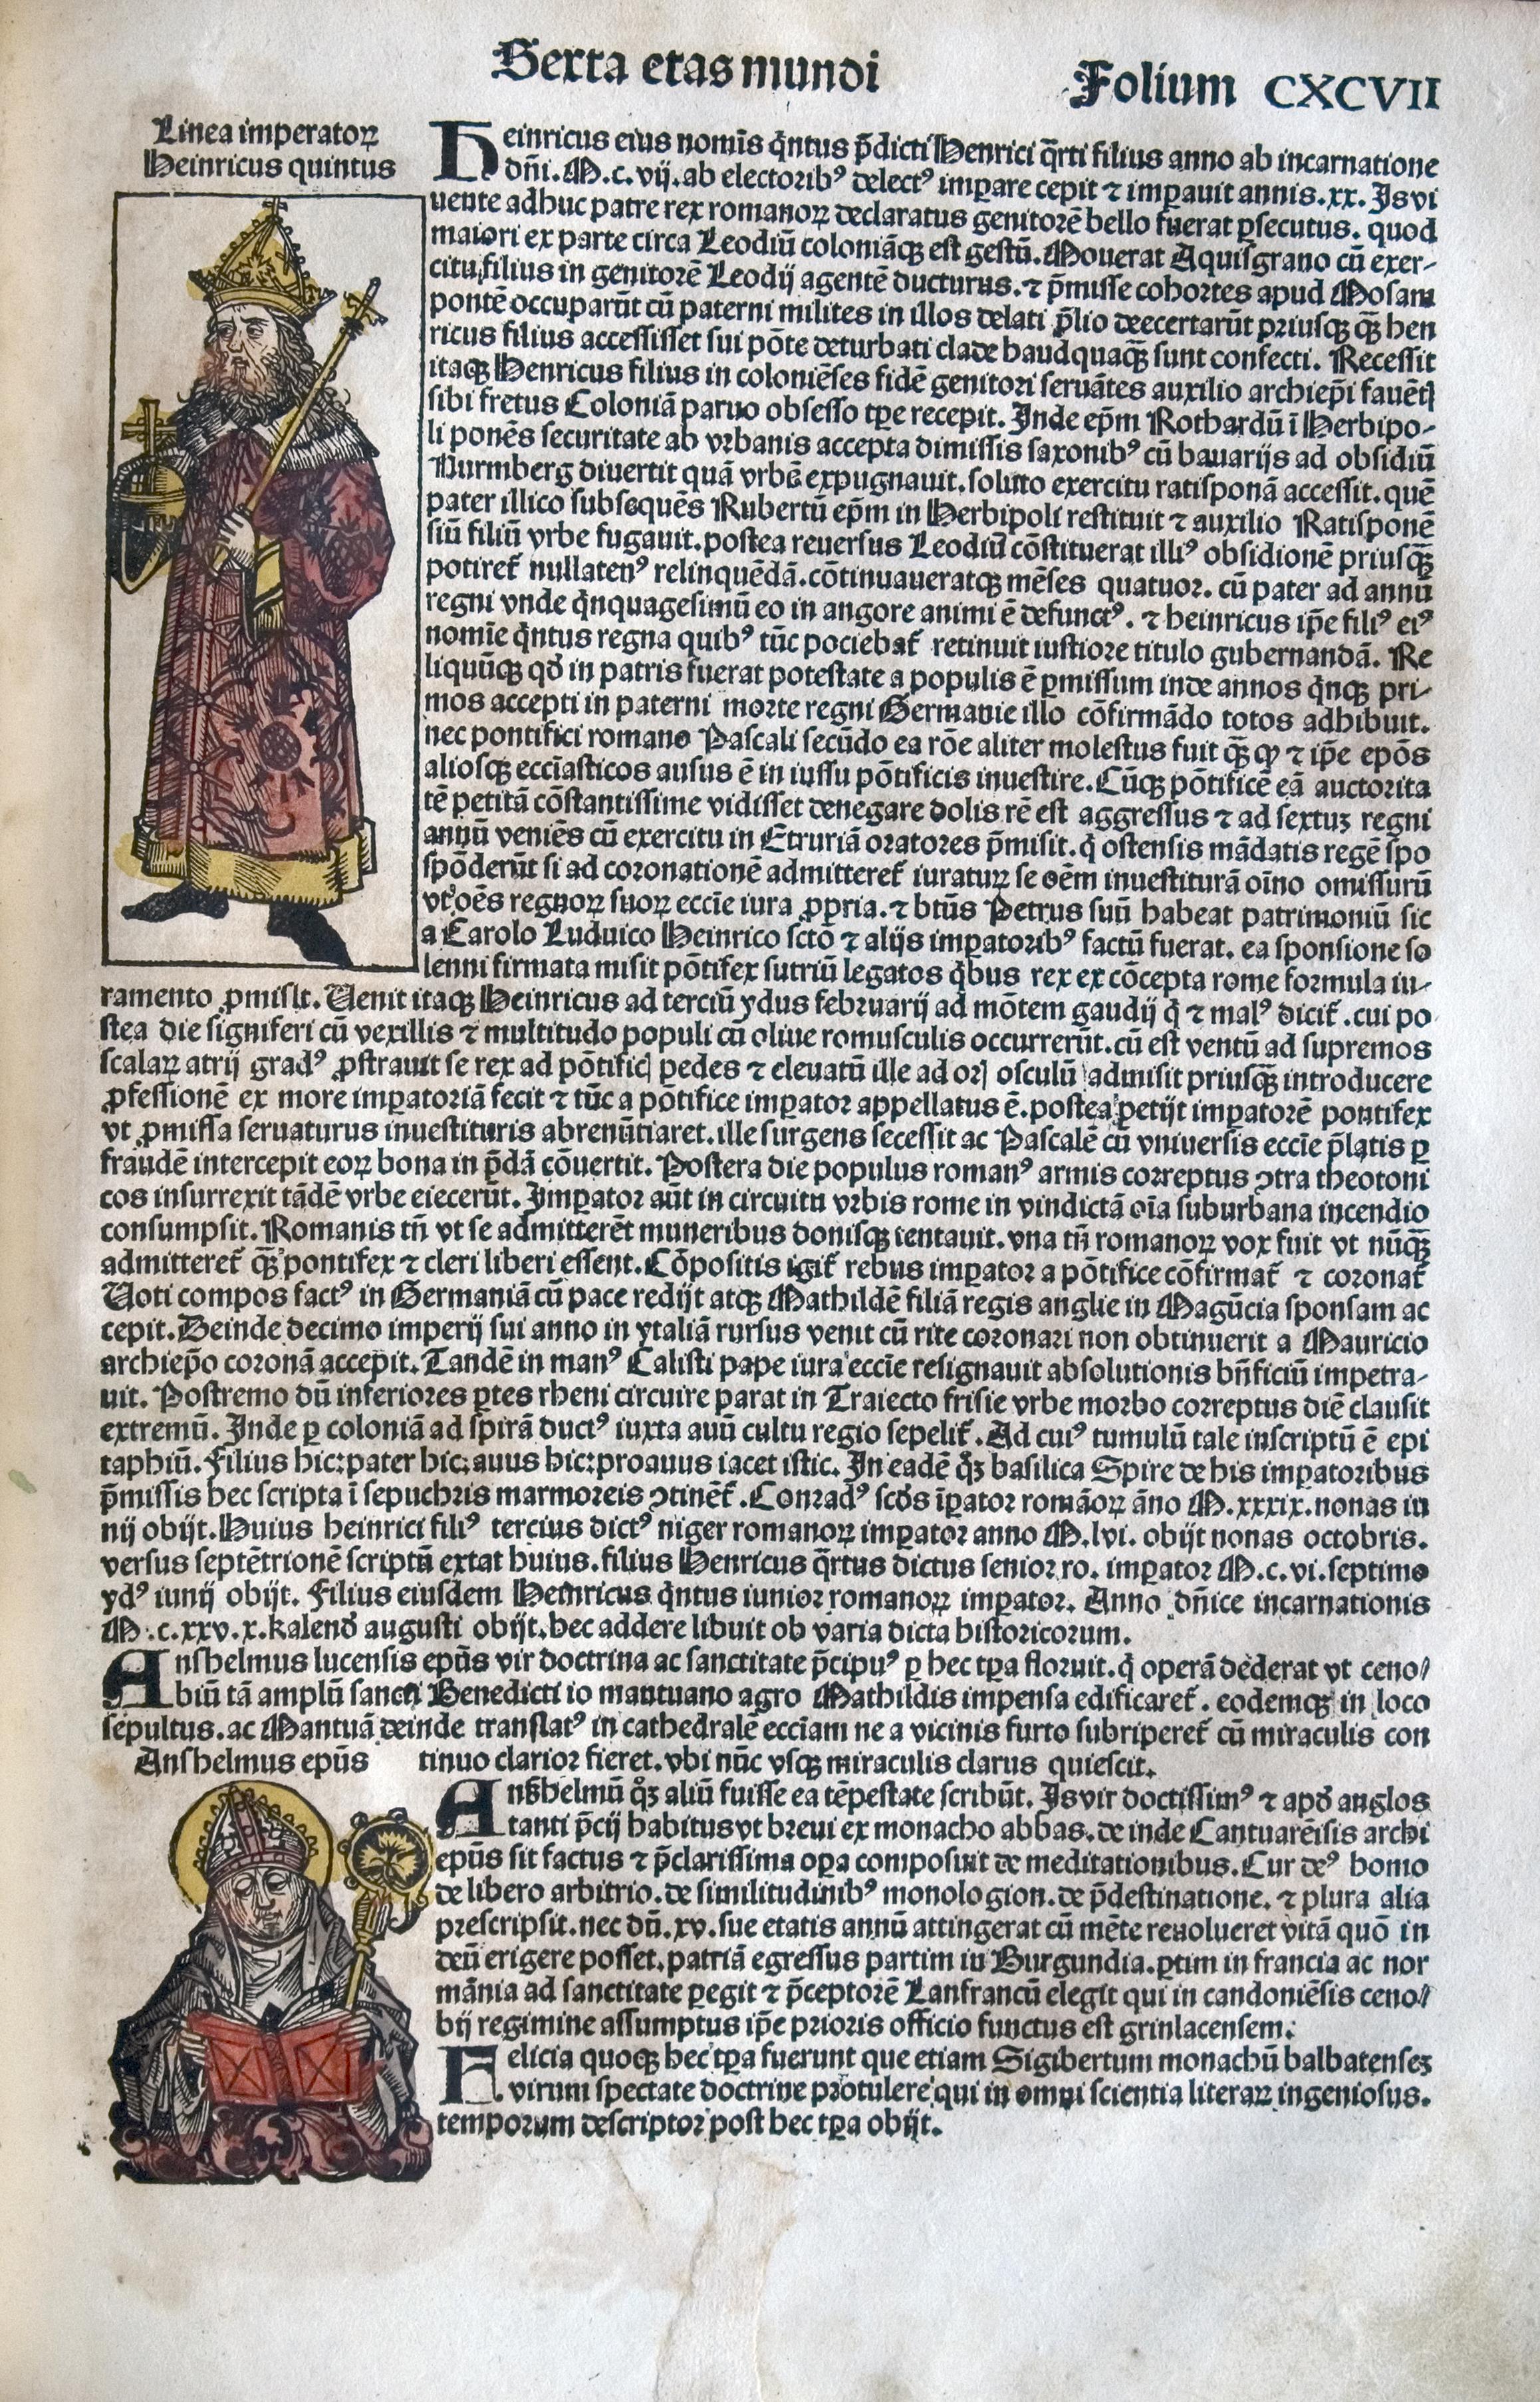 Sexta etas mundi
Folium CXCVII
Linea imperatoꝝ
Heinricus quintus
Heinricus eius nomīs q̄ntus p̄dicti Henrici q̄rti filius anno ab incarnatione
dn̄i. M. c. vij. ab electoribꝰ delectꝰ imꝑare cepit ⁊ imꝑauit annis. xx. Is vi
uente adhuc patre rex romanoꝝ declaratus genitorē bello fuerat ꝑsecutus. quod
maiori ex parte circa Leodiū coloniāqꝫ est gestū. Mouerat Aquisgrano cū exer-
citu filius in genitorē Leodij agentē ducturus. ⁊ p̄misse cohortes apud Mosam
pontē occuparūt cū paterni milites in illos delati p̄lio deecertarūt priusqꝫ qꝫ̄ hen
ricus filius accessisset sui pōte deturbati clade haudquaqꝫ̄ sunt confecti. Recessit
itaqꝫ Henricus filius in coloniēses fidē genitori seruātes auxilio archiep̄i fauētꝭ
sibi fretus Coloniā paruo obsesso tꝑe recepit. Inde ep̄m Rothardū ī Herbipo-
li ponēs securitate ab vrbanis accepta dimissis saxonibꝰ cū bauarijs ad obsidiū
Nurmberg diuertit quā vrbē expugnauit. soluto exercitu ratisponā accessit. quē
pater illico subsequēs Rubertū ep̄m in Herbipoli restituit ⁊ auxilio Ratisponē
siū filiū vrbe fugauit. postea reuersus Leodiū cōstituerat illiꝰ obsidionē priusqꝫ̄
potiret᷑ nullatenꝰ relinquēdā. cōtinuaueratqꝫ mēses quatuor. cū pater ad annū
regni vnde q̄nquagesimū eo in angore animi ē defunctꝰ. ⁊ heinricus ip̄e filiꝰ eiꝰ
nomīe q̄ntus regna quibꝰ tūc pociebat᷑ retinuit iustiore titulo gubernandā. Re
liquūqꝫ qd̄ in patris fuerat potestate a populis ē ꝑmissum inde annos q̄nqꝫ pri-
mos accepti in paterni morte regni Germanie illo cōfirmādo totos adhibuit.
nec pontifici romano Pascali secūdo ea rōe aliter molestus fuit qꝫ̄ ꝙ ⁊ ip̄e ep̄os
aliosqꝫ eccl̄iasticos ausus ē in iussu pōtificis inuestire. Cūqꝫ pōtificē eā auctorita
tē petitā cōstantissime vidisset denegare dolis rē est aggressus ⁊ ad sextuꝫ regni
annū veniēs cū exercitu in Etruriā oratores p̄misit. q̄ ostensis mādatis regē spo
spōderūt si ad coronationē admitteret᷑ iuraturꝝ se oēm inuestiturā oīno omissurū
vt oēs regnoꝝ suoꝝ eccīe iura ꝓpria. ⁊ btūs Petrus suū habeat patrimoniū sic
a Carolo Luduico Heinrico sctō ⁊ alijs imꝑatoribꝰ factū fuerat. ea sponsione so
lenni firmata misit pōtifex sutriū legatos q̄bus rex ex cōcepta rome formula iu-
ramento ꝓmisit. Uenit itaqꝫ Heinricus ad terciū ydus februarij ad mōtem gaudij q̄ ⁊ malꝰ dicit᷑. cui po
stea die signiferi cū vexillis ⁊ multitudo populi cū oliue romusculis occurrerūt. cū est ventū ad supremos
scalaꝝ atrij gradꝰ ꝓstrauit se rex ad pōtificꝭ pedes ⁊ eleuatū ille ad orꝭ osculū admisit priusqꝫ̄ introducere
ꝓfessionē ex more imꝑatoriā fecit ⁊ tūc a pōtifice imꝑator appellatus ē. postea petijt imꝑatorē pontifex
vt ꝓmissa seruaturus inuestituris abrenūtiaret. ille surgens secessit ac Pascalē cū vniuersis eccīe p̄latis ꝑ
fraudē intercepit eoꝝ bona in p̄dā cōuertit. Postera die populus romanꝰ armis correptus ꝯtra theotoni
cos insurrexit tādē vrbe eiecerūt. Imꝑator aūt in circuitu vrbis rome in vindictā oīa suburbana incendio
consumpsit. Romanis tn̄ vt se admitterēt muneribus donisqꝫ tentauit. vna tn̄ romanoꝝ vox fuit vt nūqꝫ̄
admitteret᷑ qꝫ̄ pontifex ⁊ cleri liberi essent. Cōpositis igit᷑ rebus imꝑator a pōtifice cōfirmat᷑ ⁊ coronat᷑
Uoti compos factꝰ in Germaniā cū pace redijt atqꝫ Mathildē filiā regis anglie in Magūcia sponsam ac
cepit. Deinde decimo imperij sui anno in ytaliā rursus venit cū rite coronari non obtinuerit a Mauricio
archiep̄o coronā accepit. Tandē in manꝰ Calisti pape iura eccīe resignauit absolutionis bn̄ficiū impetra-
uit. Postremo dū inferiores ꝑtes rheni circuire parat in Traiecto frisie vrbe morbo correptus diē clausit
extremū. Inde ꝑ coloniā ad spirā ductꝰ iuxta auū cultu regio sepelit᷑. Ad cuiꝰ tumulū tale inscriptū ē epi
taphiū. Filius hic: pater hic: auus hic: proauus iacet istic. In eadē q̄ꝫ basilica Spire de his imꝑatoribus
p̄missis hec scripta ī sepuchris marmoreis ꝯtinēt᷑. Conradꝰ scd̄s īꝑator romāoꝝ āno M. xxxix. nonas iu
nij obijt. Huius heinrici filiꝰ tercius dictꝰ niger romanoꝝ imꝑator anno M. lvi. obijt nonas octobris.
versus septētrionē scriptū extat huius. filius Henricus q̄rtus dictus senior ro. imꝑator M. c. vi. septimo
ydꝰ iunij obijt. Filius eiusdem Heinricus q̄ntus iunior romanoꝝ imꝑator. Anno dn̄ice incarnationis
M. c. xxv. x. kalend̄ augusti obijt. hec addere libuit ob varia dicta historicorum.
Anshelmus lucensis ep̄us vir doctrina ac sanctitate p̄cipuꝰ ꝑ hec tꝑa floruit. q̄ operā dederat vt ceno/
biū tā amplū sancti Benedicti io mantuano agro Mathildis impensa edificaret᷑. eodemqꝫ in loco
sepultus. ac Mantuā deinde translatꝰ in cathedralē eccl̄iam ne a vicinis furto subriperet᷑ cū miraculis con
Anshelmus ep̄us
tinuo clarior fieret. vbi nūc vsqꝫ miraculis clarus quiescit.
Anshelmū qͦꝫ aliū fuisse ea tēpestate scribūt. Is vir doctissimꝰ ⁊ apd̄ anglos
tanti p̄cij habitus vt breui ex monacho abbas. de inde Cantuarēisis archi
ep̄us sit factus ⁊ p̄clarissima oꝑa composuit de meditationibus. Cur deꝰ homo
de libero arbitrio. de similitudinibꝰ monologion. de p̄destinatione. ⁊ plura alia
prescripsit. nec dū. xv. sue etatis annū attingerat cū mēte reuolueret vitā quō in
deū erigere posset. patriā egressus partim in Burgundia. ꝑtim in francia ac nor
mānia ad sanctitate ꝑegit ⁊ p̄ceptorē Lanfrancū elegit qui in candoniēsis ceno/
bij regimine assumptus ip̄e prioris officio functus est grinlacensem.
Felicia quoqꝫ hec tꝑa fuerunt que etiam Sigibertum monachū balbatenseꝫ
virum spectate doctrine protulere qui in omni scientia literaꝝ ingeniosus.
temporum descriptor post hec tꝑa obijt.